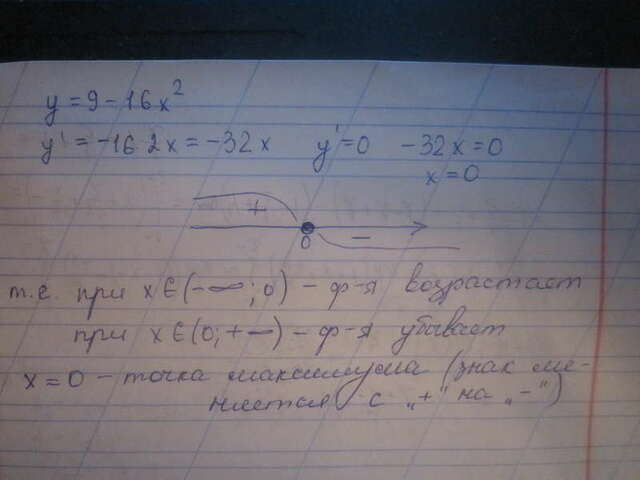 y = 9 - 16x²
y' = -16·2x = -32x y' = 0 -32x = 0
x = 0
+
0 -
т.е. при x∈(-∞; 0) - ф-я возрастает
при x∈(0; +∞) - ф-я убывает
x = 0 - точка максимума (знак ме-
няется с „+" на „-")